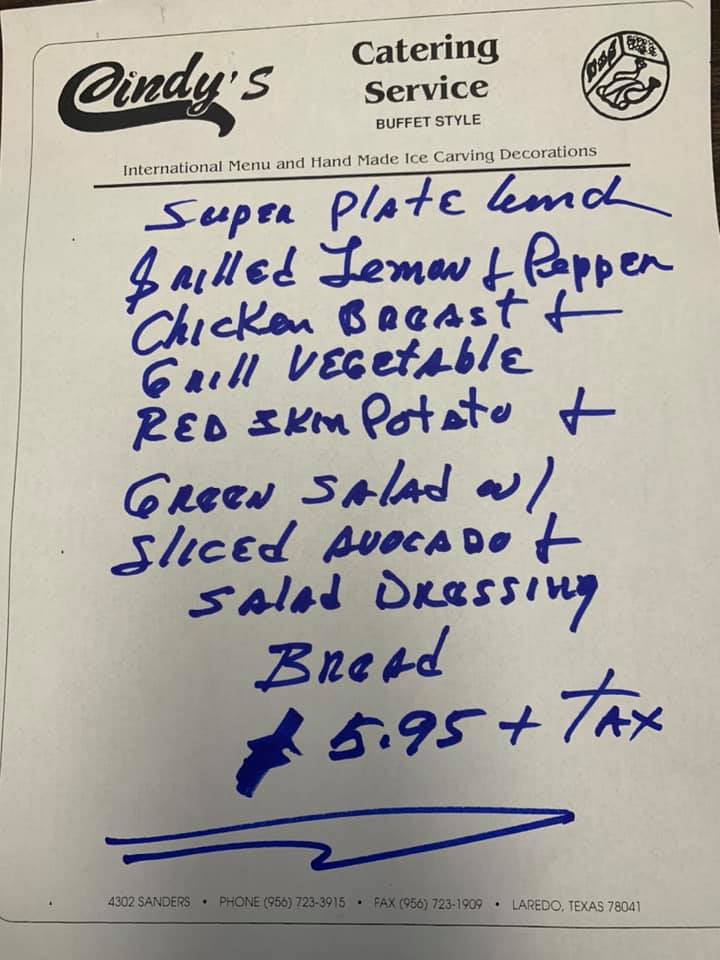 Cindy's
Catering
Service
BUFFET STYLE
International Menu and Hand Made Ice Carving Decorations
Super Plate lunch
Grilled Lemon & Pepper
Chicken Breast &
Grill Vegetable
Red Skin Potato &
Green Salad w/
Sliced Avocado &
Salad Dressing
Bread
$ 5.95 + Tax
4302 SANDERS • PHONE (956) 723-3915 • FAX (956) 723-1909 • LAREDO, TEXAS 78041